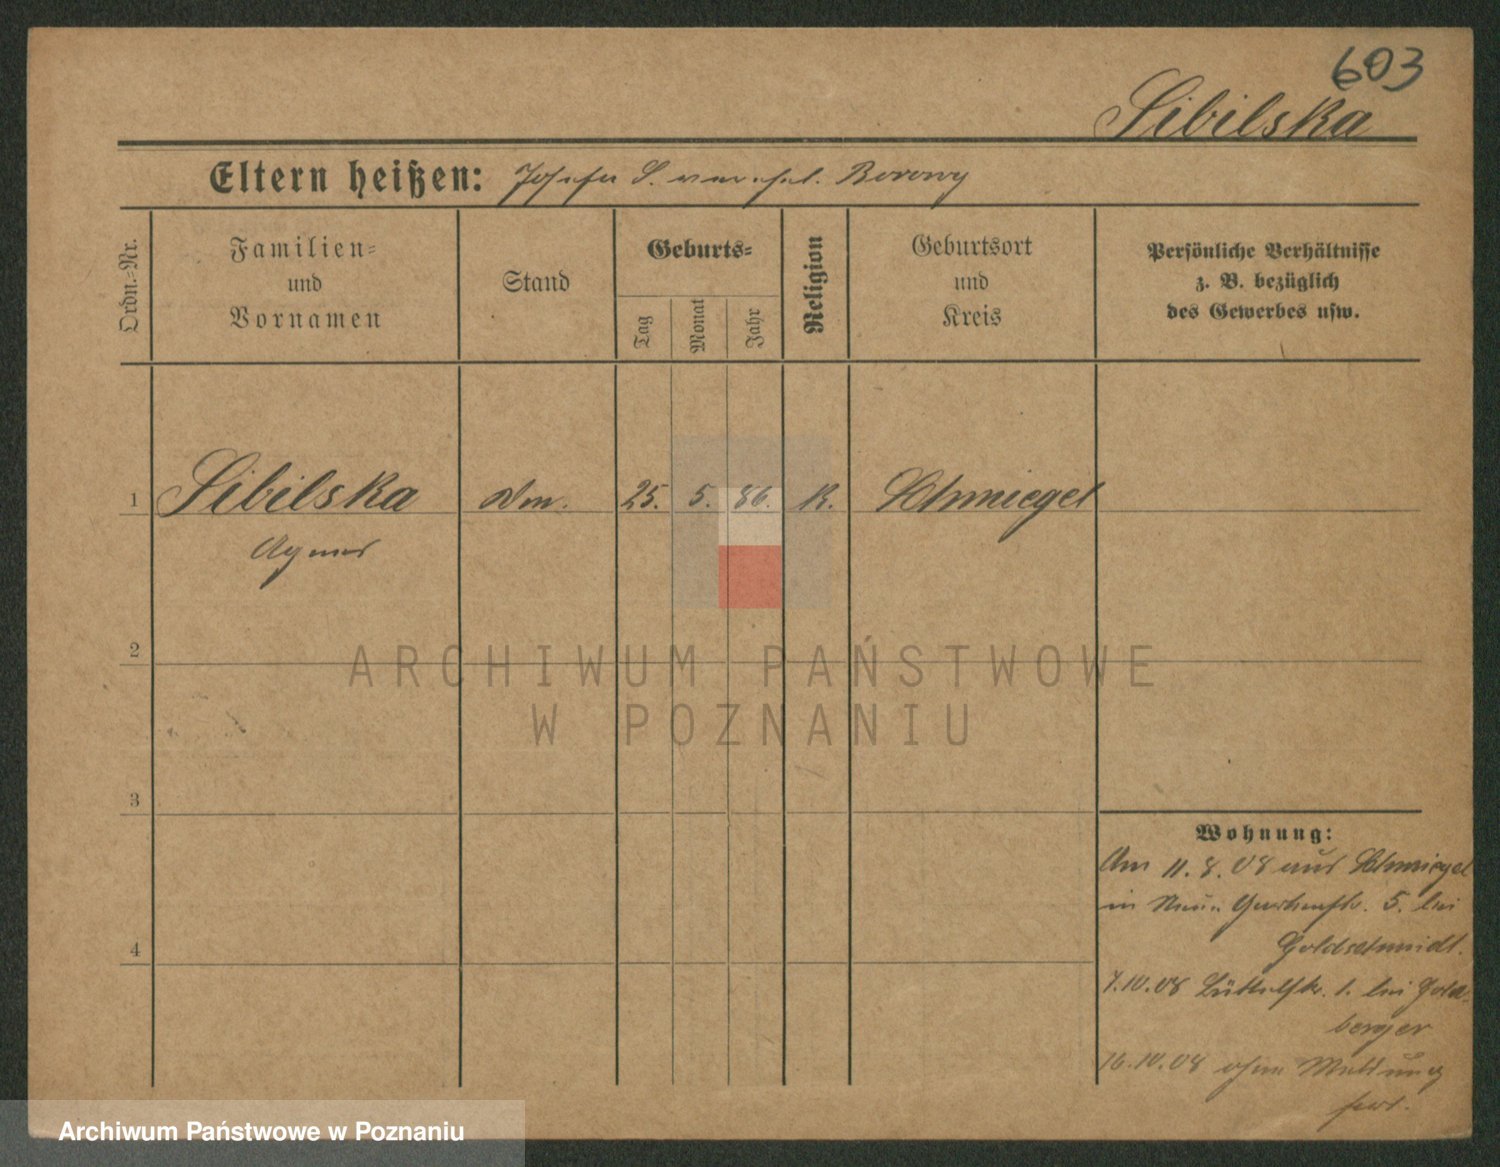 603
Sibilska
Eltern heißen: Josefa S. verehel. Borowy
Ordn.-Nr.
Familien-
und
Vornamen
Stand
Geburts-
Tag
Monat
Jahr
Religion
Geburtsort
und
Kreis
Persönliche Verhältnisse
z. B. bezüglich
des Gewerbes usw.
1 Sibilska 25. 5. 86. K. Schmiegel
Agnes
2
ARCHIWUM PAŃSTWOWE
W POZNANIU
3
Wohnung:
Am 11.8.08 aus Schmiegel
in Gartenstr. 5. bei
Goldschmidt.
4
7.10.08 Büttelstr. 1. bei Gold-
berger
16.10.08 ohne Meldung
fort.
Archiwum Państwowe w Poznaniu